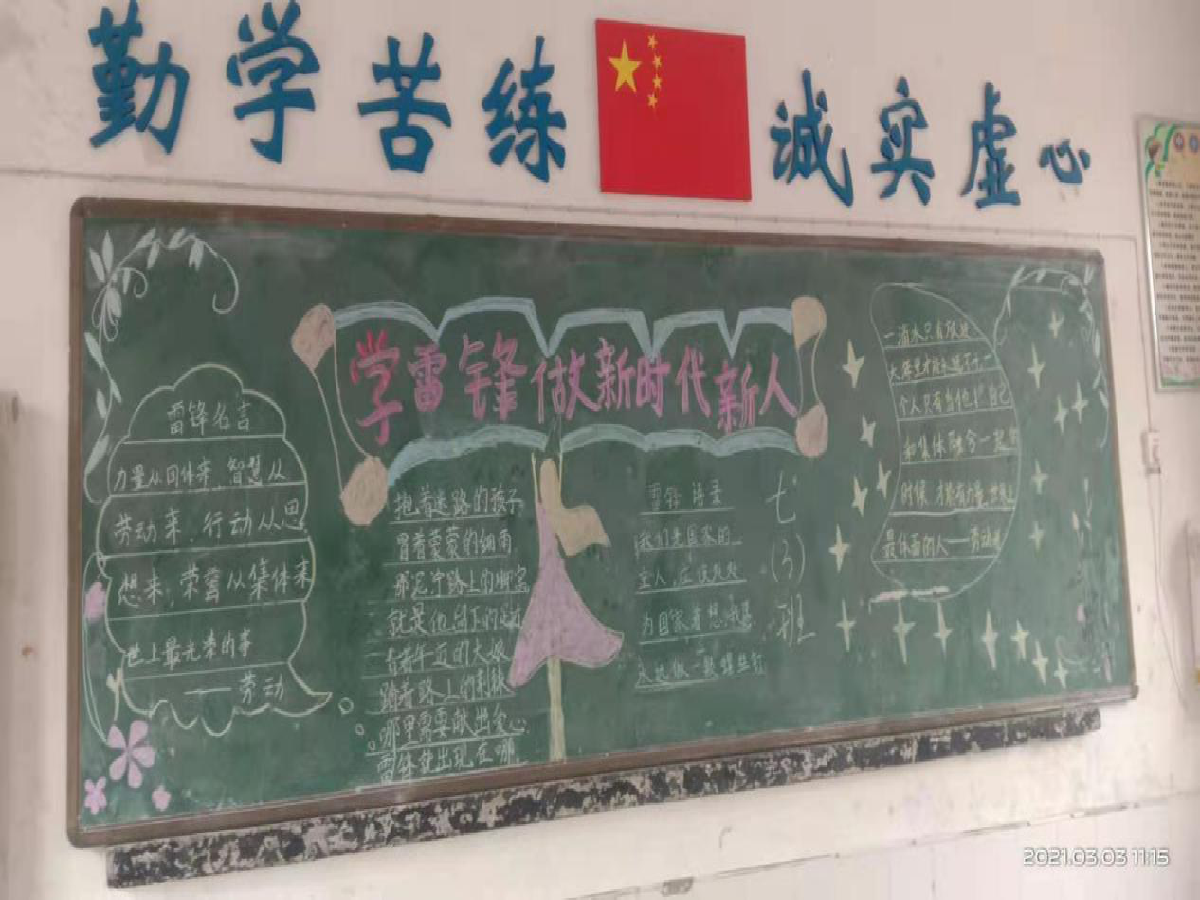 勤学苦练 诚实虚心
学雷锋做新时代新人
雷锋名言
力量从团体来,智慧从
劳动来,行动从思
想来,荣誉从集体来
世上最光荣的事
——劳动
抱着迷路的孩子
冒着蒙蒙的细雨
那泥泞路上的脚窝
就是他留下的足迹
年迈的大娘
踏着路上的荆棘
哪里需要献出爱心
雷锋就出现在哪
雷锋
我们是国家的
主人,应该处处
为国家着想
永远做一颗螺丝钉
七(3)班
一滴水只有放进
大海里才能永远不干 一
个人只有当他把自己
和集体融合一起的
时候,才能有力量 世界上
最伟大的人——劳动
2021.03.03 11:15